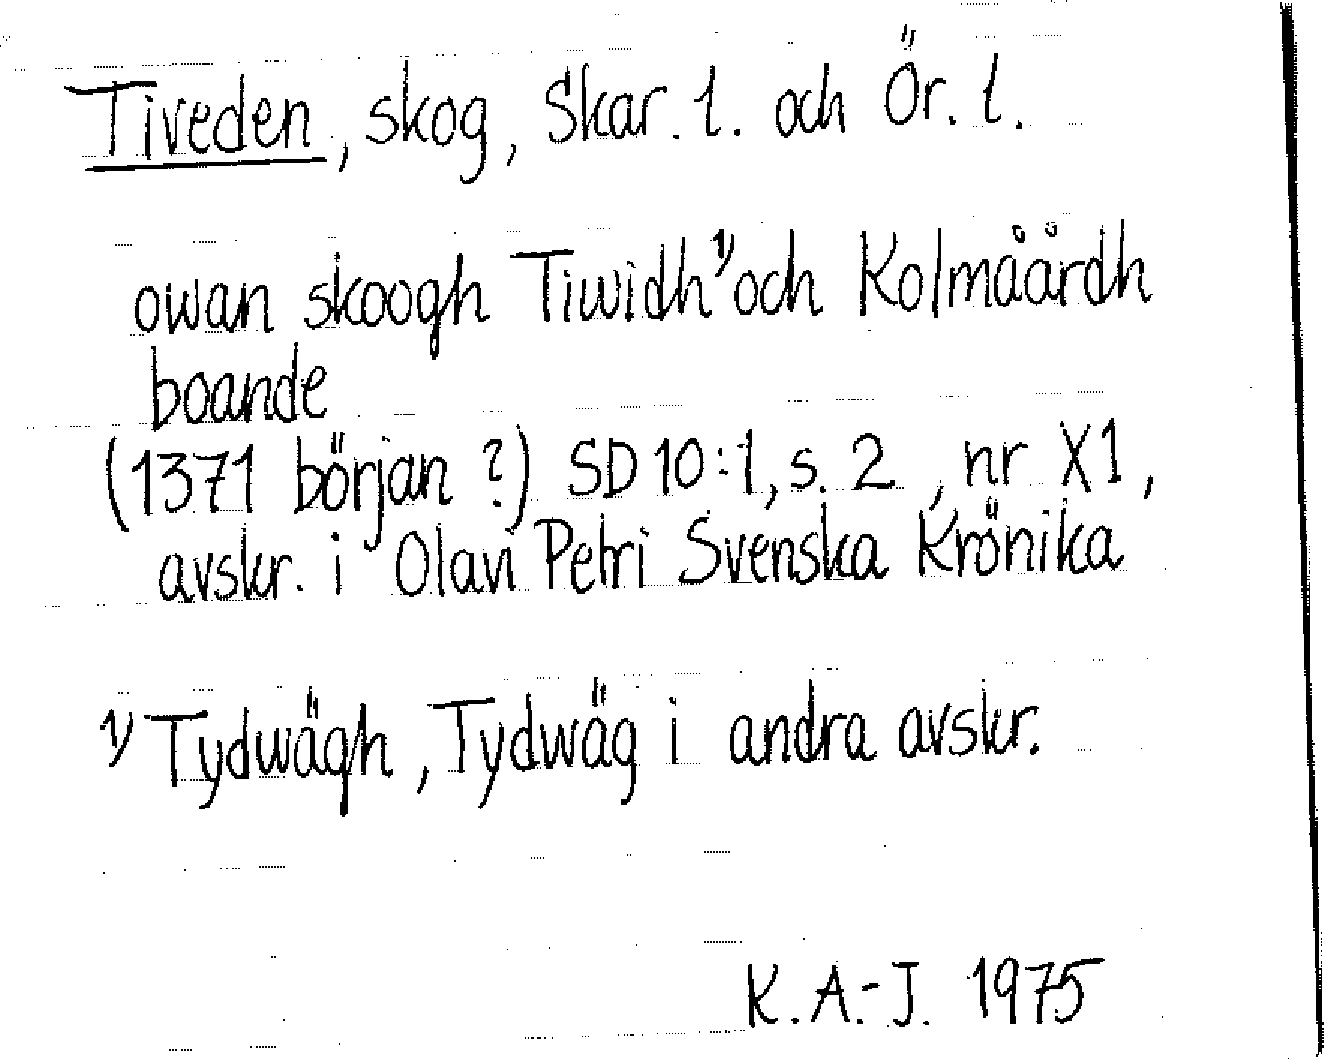 Tiveden, skog, Skar. l. och Ör. l.
owan skoogh Tiwidh 1) och Kolmåårdh
boande
(1371 början ?) SD 10:1, s. 2, nr X1,
avskr. i Olavi Petri Svenska Krönika
1) Tydwägh, Tydwäg i andra avskr.
K.A.-J. 1975